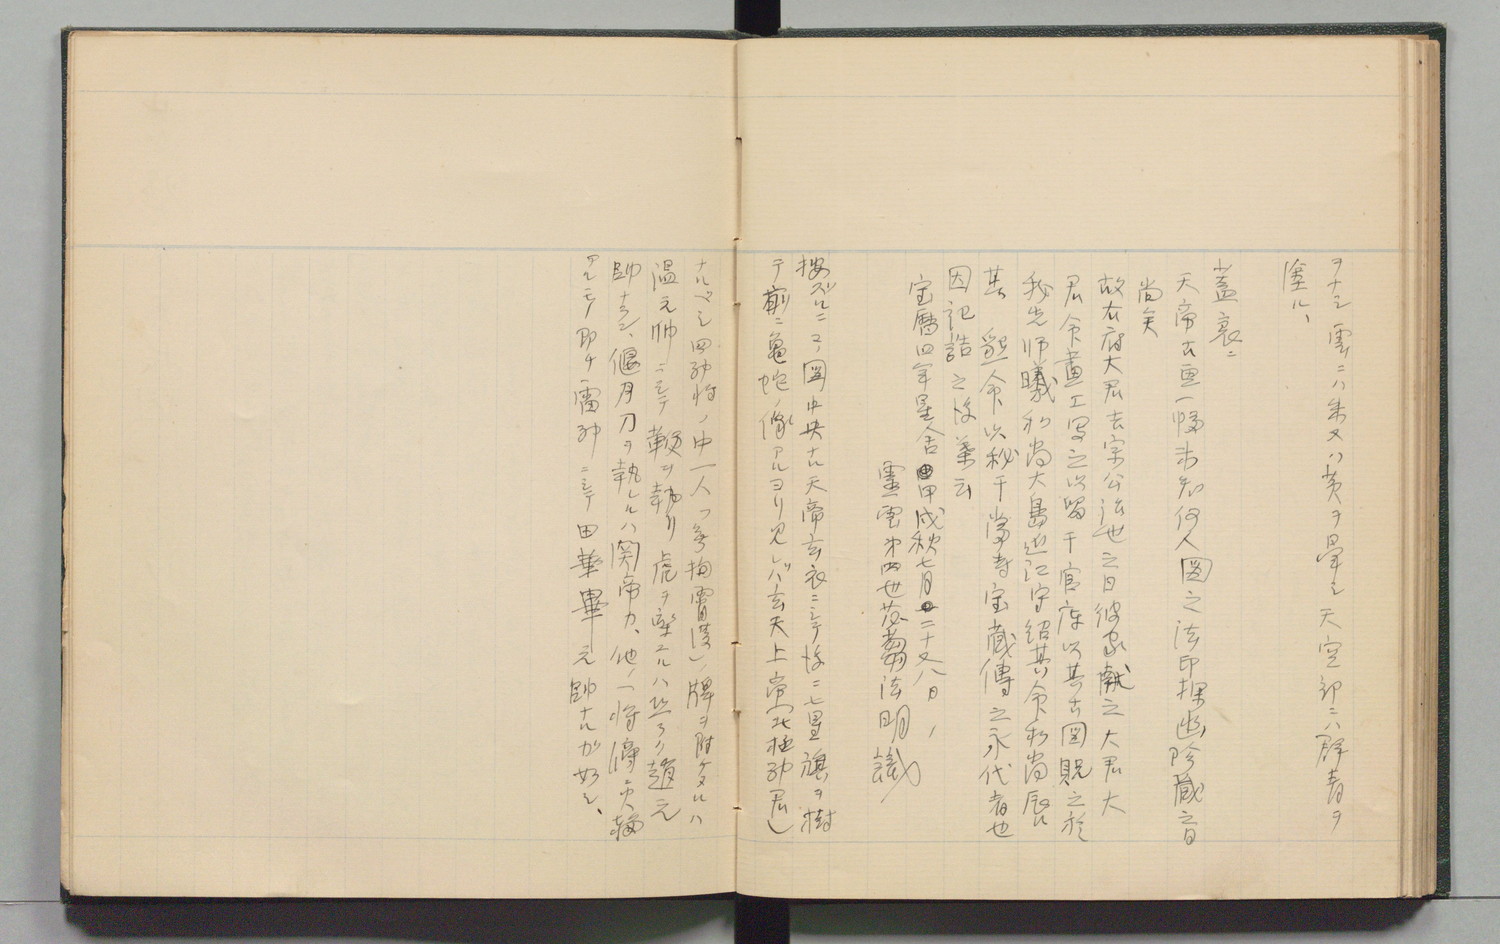 ヲナシ雲ニハ朱又ハ黄ヲ暈シ天空部ニハ群青ヲ
塗ル、
蓋裏ニ
天帝古画一幀未知何人図之法印探幽珍蔵之旨
尚矣
故右府大君吉宗公治世之日彼家献之大君大
君命畫工写之以留于官庫以其古図賜之於
我先師曦和尚大島近江守紹其命和尚辰
其 懿命以秘于當寺宝蔵傳之永代者也
因記誥之後葉云
宝暦四年星舎甲戌秋七月二十又八日、
靈雲第四世苾蒭法明議
按ズルニコノ図中央ナル天帝玄衣ニシテ後ニ七星旗ヲ樹
テ前ニ亀蛇ノ像アルヨリ見レバ「玄天上帝北極神君」
ナルベシ四神将ノ中一人「無拘霄漢」ノ牌ヲ附ケタルハ
温元帥ニシテ鞭ヲ執リ虎ヲ牽ヰルハ恐ラク趙元
帥ナラン、偃月刀ヲ執レルハ関帝カ、他ノ一将傍ニ火輪
アルモノ即チ雷神ニシテ田華畢元帥ナルガ如シ、